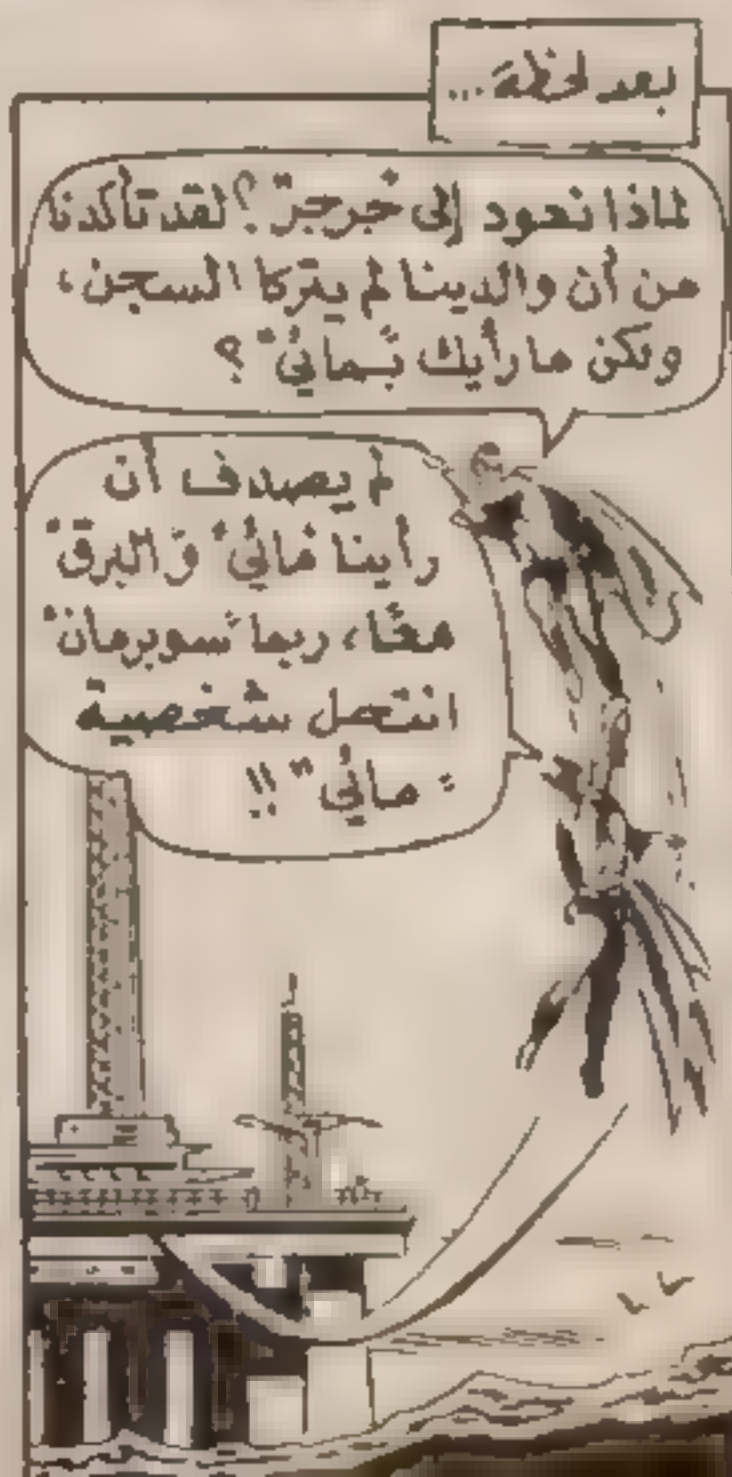 بعد لحظة...
لماذا نعود إلى "جرجر"؟ لقد تأكدنا
من أن والدينا لم يتركا السجن،
ولكن ما رأيك بـ"ماني"؟
لم يصدف أن
رأينا "ماني" و"البرق"
معًا، ربما "سوبرمان"
انتحل شخصية
"ماني"!!